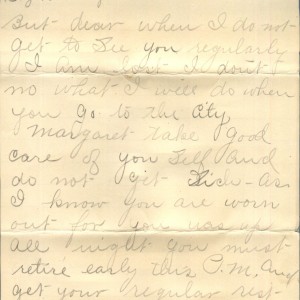 But dear when I do not
get to See you regularly
I Am lost I dont
no what I will do when
you Go to the City
Margaret take Good
care of you Self and
do not get Sick - As
I know you are worn
out for you was up
all night you must
retire early this P.M. And
get your regular rest